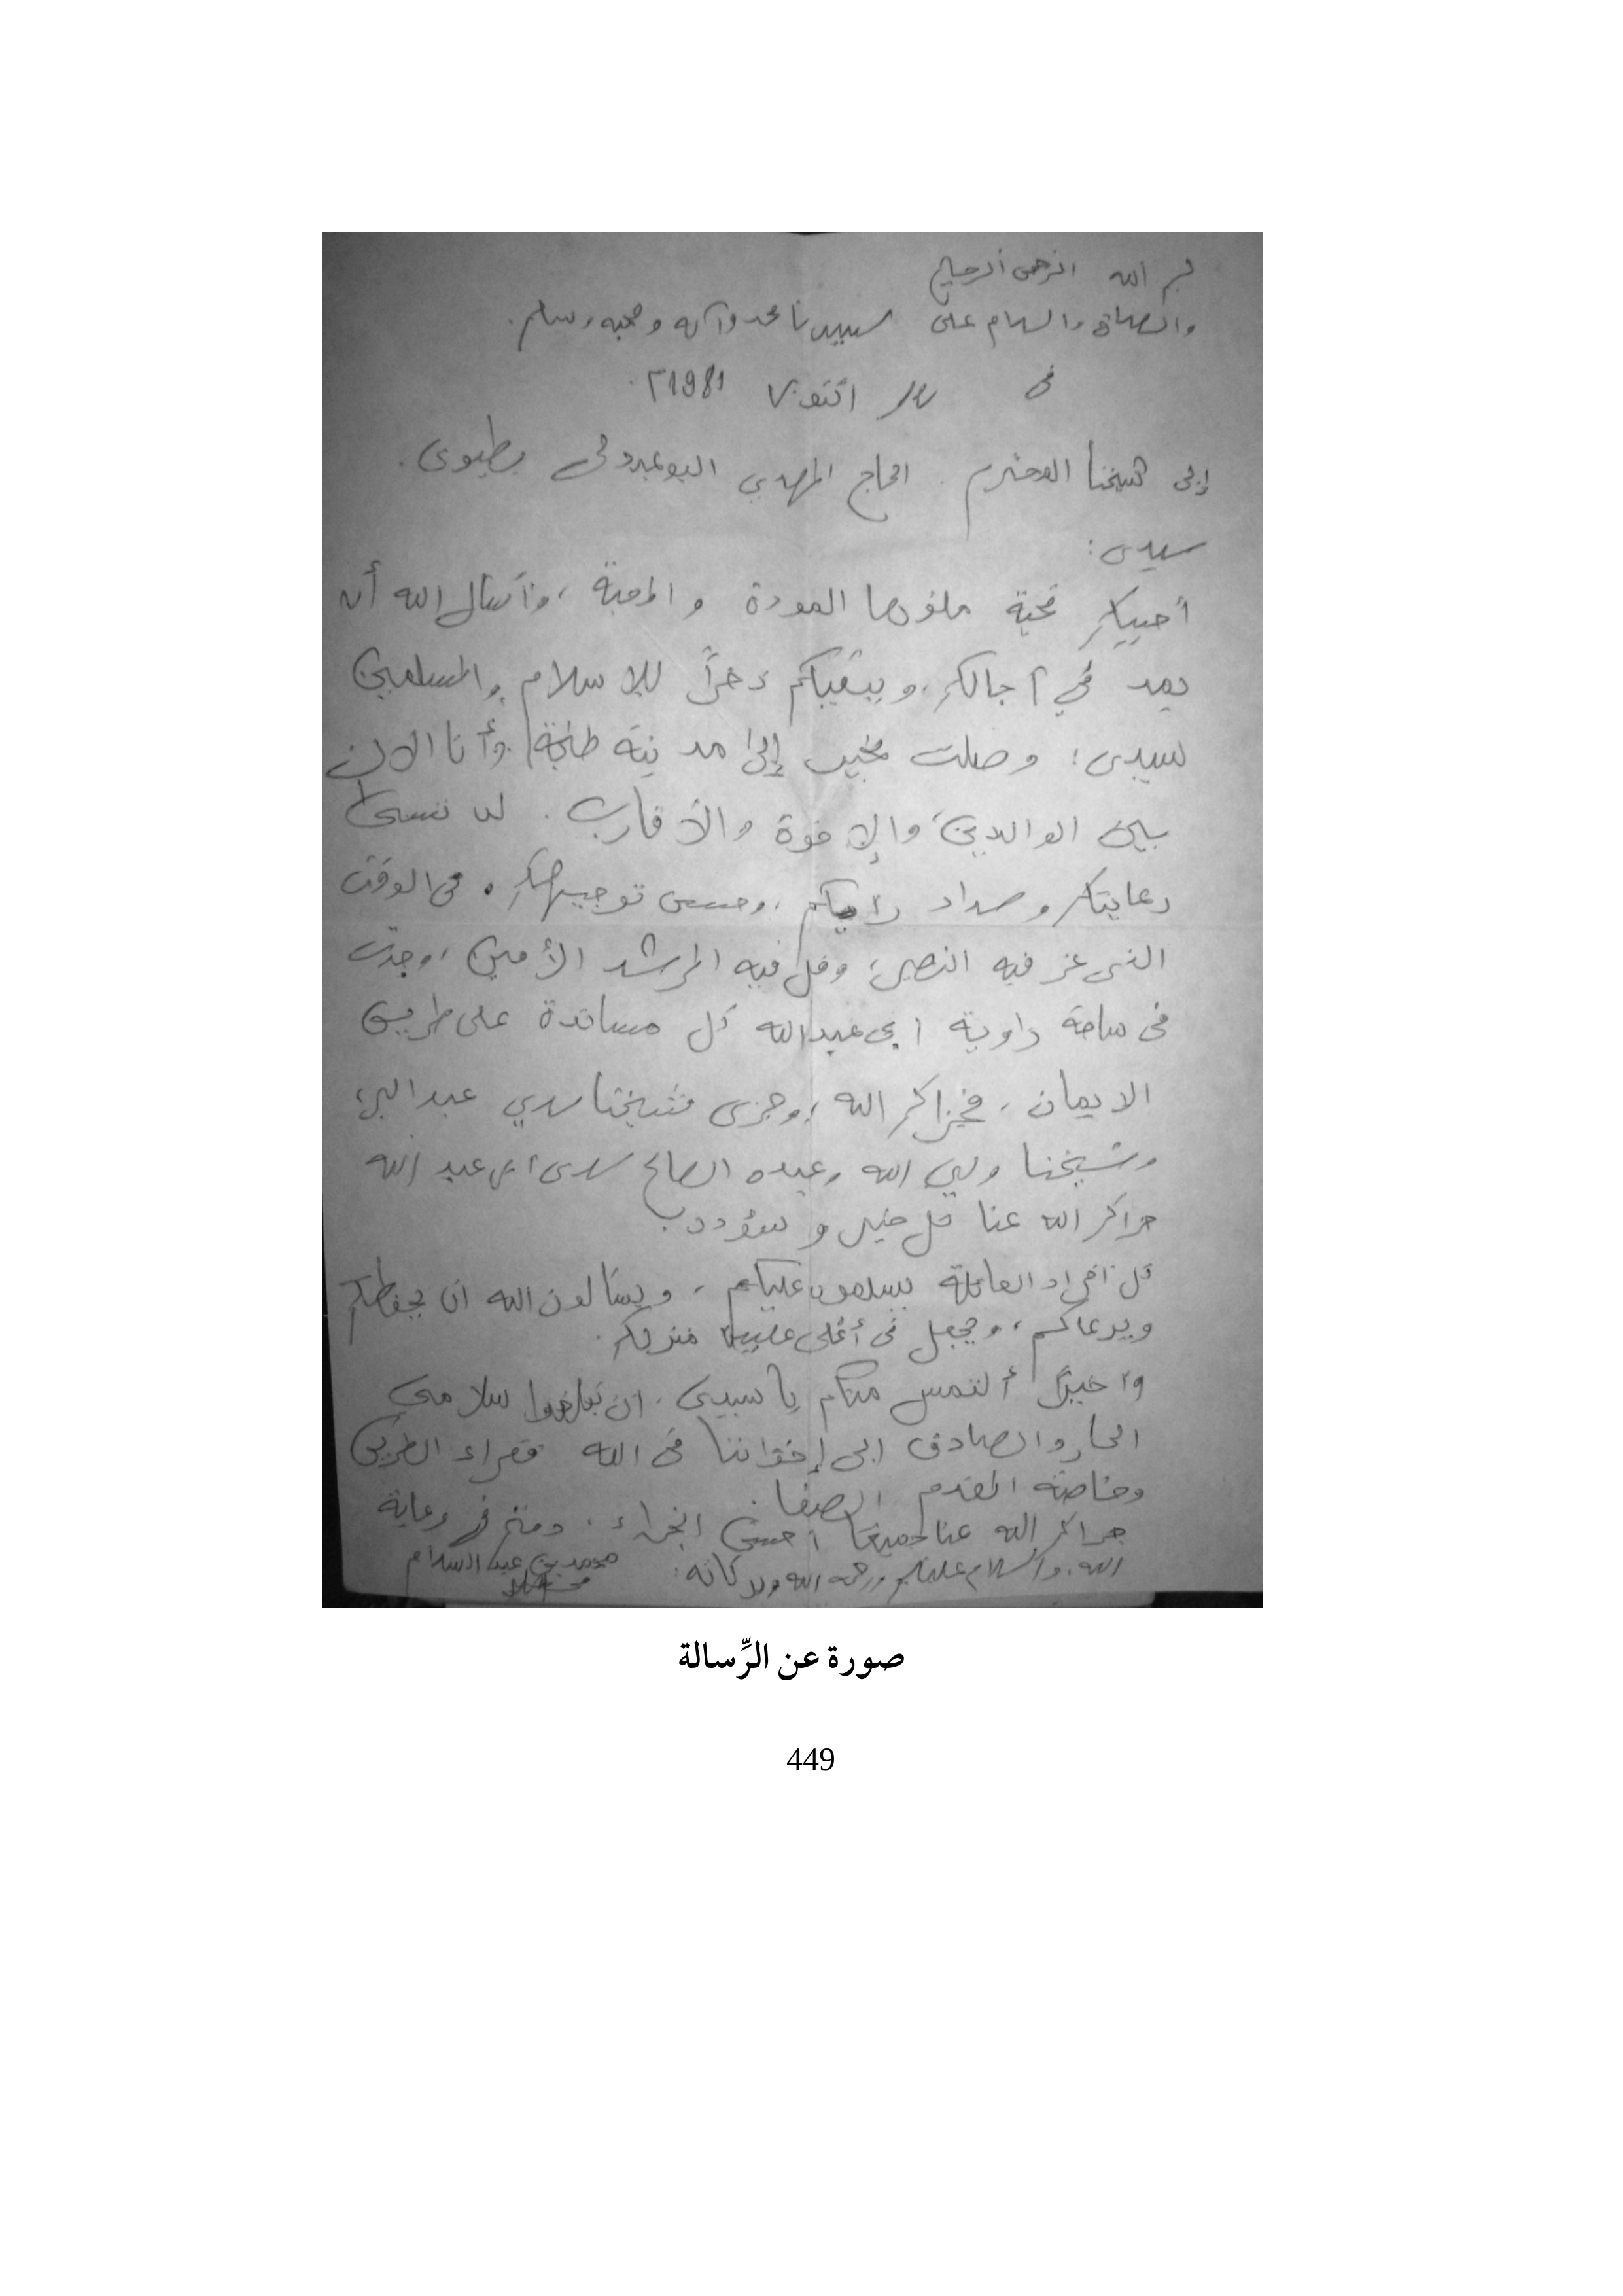 بسم الله الرحمن الرحيم
والصلاة والسلام على سيدنا محمد وآله وصحبه وسلم.
في اكتوبر 1981م.
إلى شيخنا المحترم. الحاج المهدي البوعبدلي بطيوى.
سيدى:
أحييكم تحية ملؤها المودة والمحبة، وأسأل الله أن
يمد في آجالكم، ويبقيكم ذخراً للإسلام والمسلمين
سيدى؛ وصلت بخير إلى مدينة طنجة، وأنا الآن
بين الوالدين، والإخوة والأقارب. لا ننسى
رعايتكم وسداد رأيكم، وحسن توجيهكم. في الوقت
الذى عز فيه النصير، وقل فيه المرشد الأمين، وجدت
في ساحة زاوية أبي عبد الله كل مساندة على طريق
الايمان، فجزاكم الله، وجزى شيخنا سيدي عبد البر،
وشيخنا ولي الله وعبده الصالح سيدى أبى عبد الله
جزاكم الله عنا كل خير وسؤدد.
كل أفراد العائلة يسلمون عليكم، ويسألون الله ان يحفظكم
ويرعاكم، ويجعل في أعلى عليين منزلكم.
وأخيراً ألتمس منكم يا سيدى، ان تبلغوا سلامي
الحار والصادق الى إخواننا في الله فقراء الطريق
وخاصة المقدم الصفا.
جزاكم الله عنا جميعاً أحسن الجزاء. ودمتم في رعاية
الله، والسلام عليكم ورحمة الله وبركاته.
محمد بن عبد السلام
صورة عن الرِّسالة
449